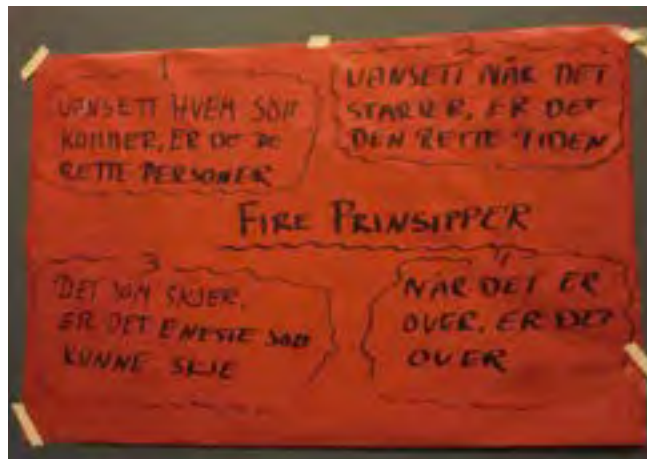 1
UANSETT HVEM SOM
KOMMER, ER DE DE
RETTE PERSONER
2
UANSETT NÅR DET
STARTER, ER DET
DEN RETTE TIDEN
FIRE PRINSIPPER
3
DET SOM SKJER,
ER DET ENESTE SOM
KUNNE SKJE
4
NÅR DET ER
OVER, ER DET
OVER